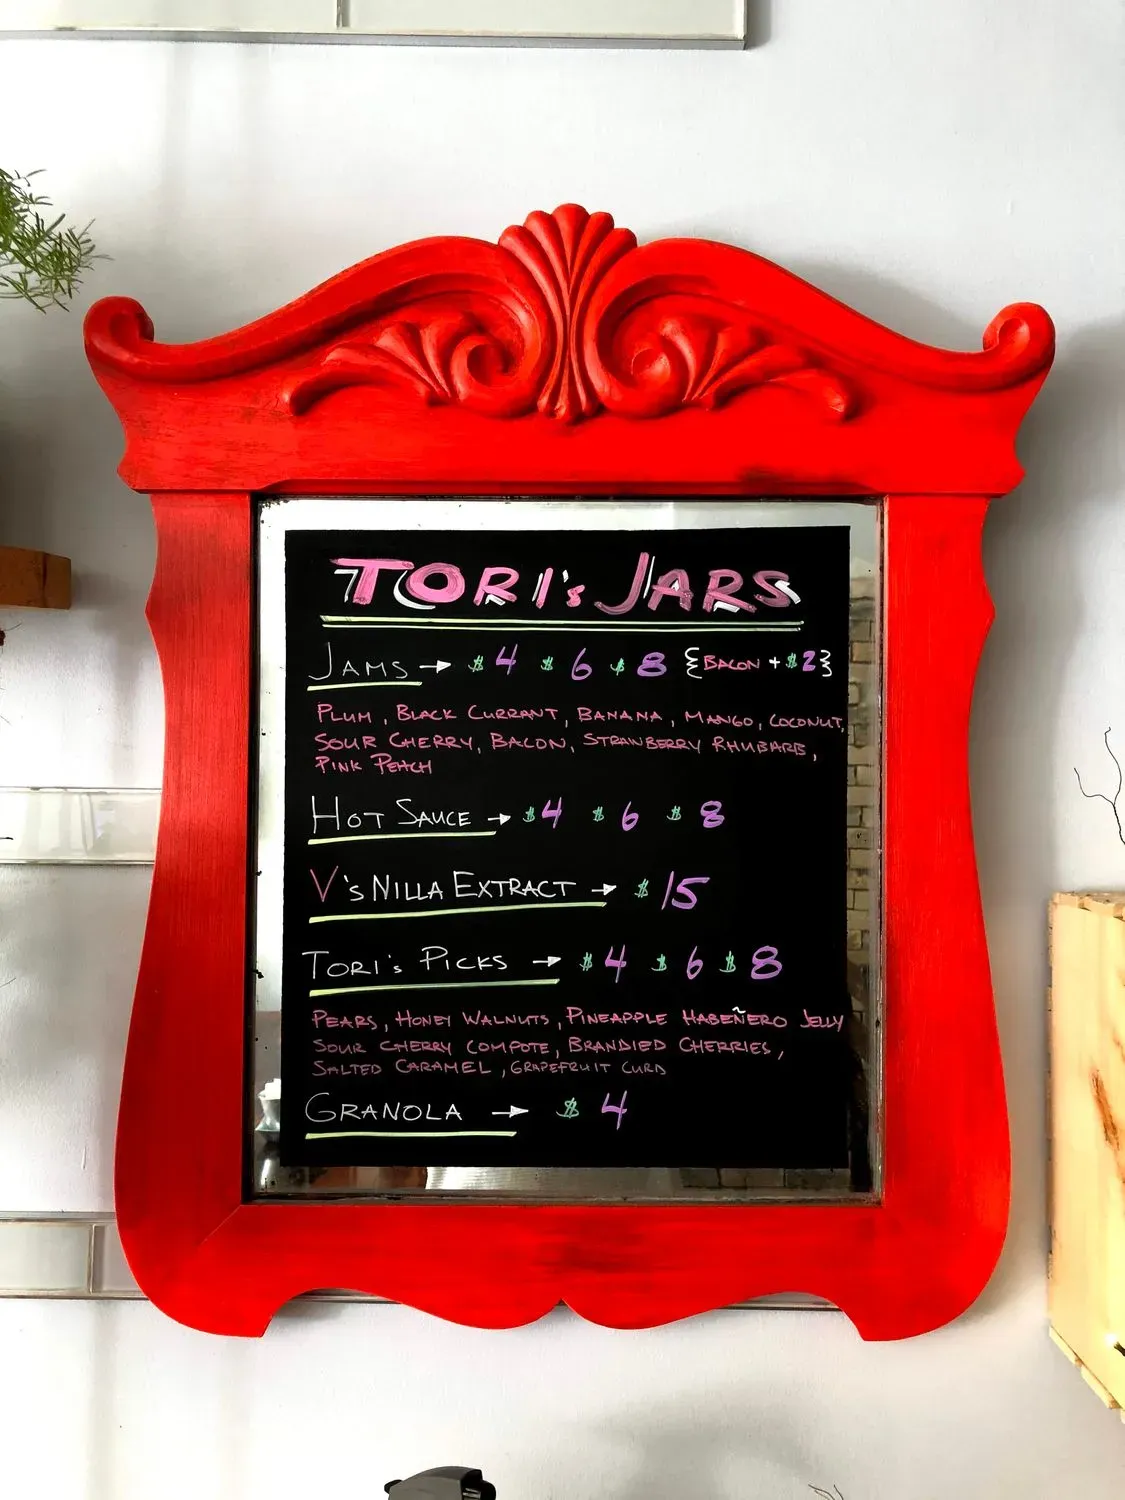 TORI's JARS
JAMS → $4 $6 $8 {BACON + $2}
PLUM, BLACK CURRANT, BANANA, MANGO, COCONUT,
SOUR CHERRY, BACON, STRAWBERRY RHUBARB,
PINK PEACH
HOT SAUCE → $4 $6 $8
V's NILLA EXTRACT → $15
TORI's PICKS → $4 $6 $8
PEARS, HONEY WALNUTS, PINEAPPLE HABEÑERO JELLY
SOUR CHERRY COMPOTE, BRANDIED CHERRIES,
SALTED CARAMEL, GRAPEFRUIT CURD
GRANOLA → $4